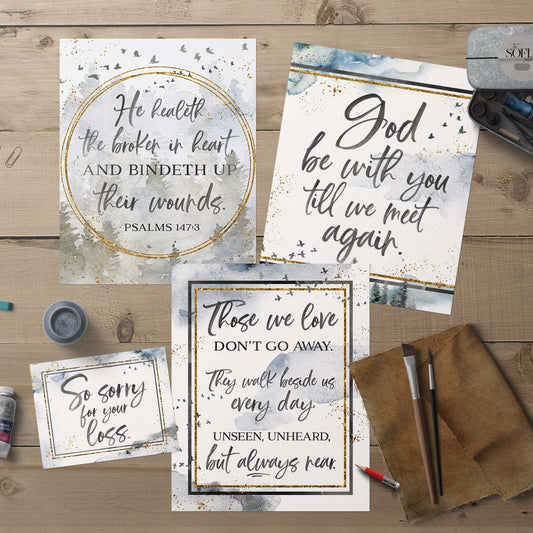 He healeth
the broken in heart,
AND BINDETH UP
their wounds.
PSALMS 147:3
God
be with you
till we meet
again.
Those we love
DON'T GO AWAY.
They walk beside us
every day.
UNSEEN, UNHEARD,
but always near.
So sorry
for your
loss.